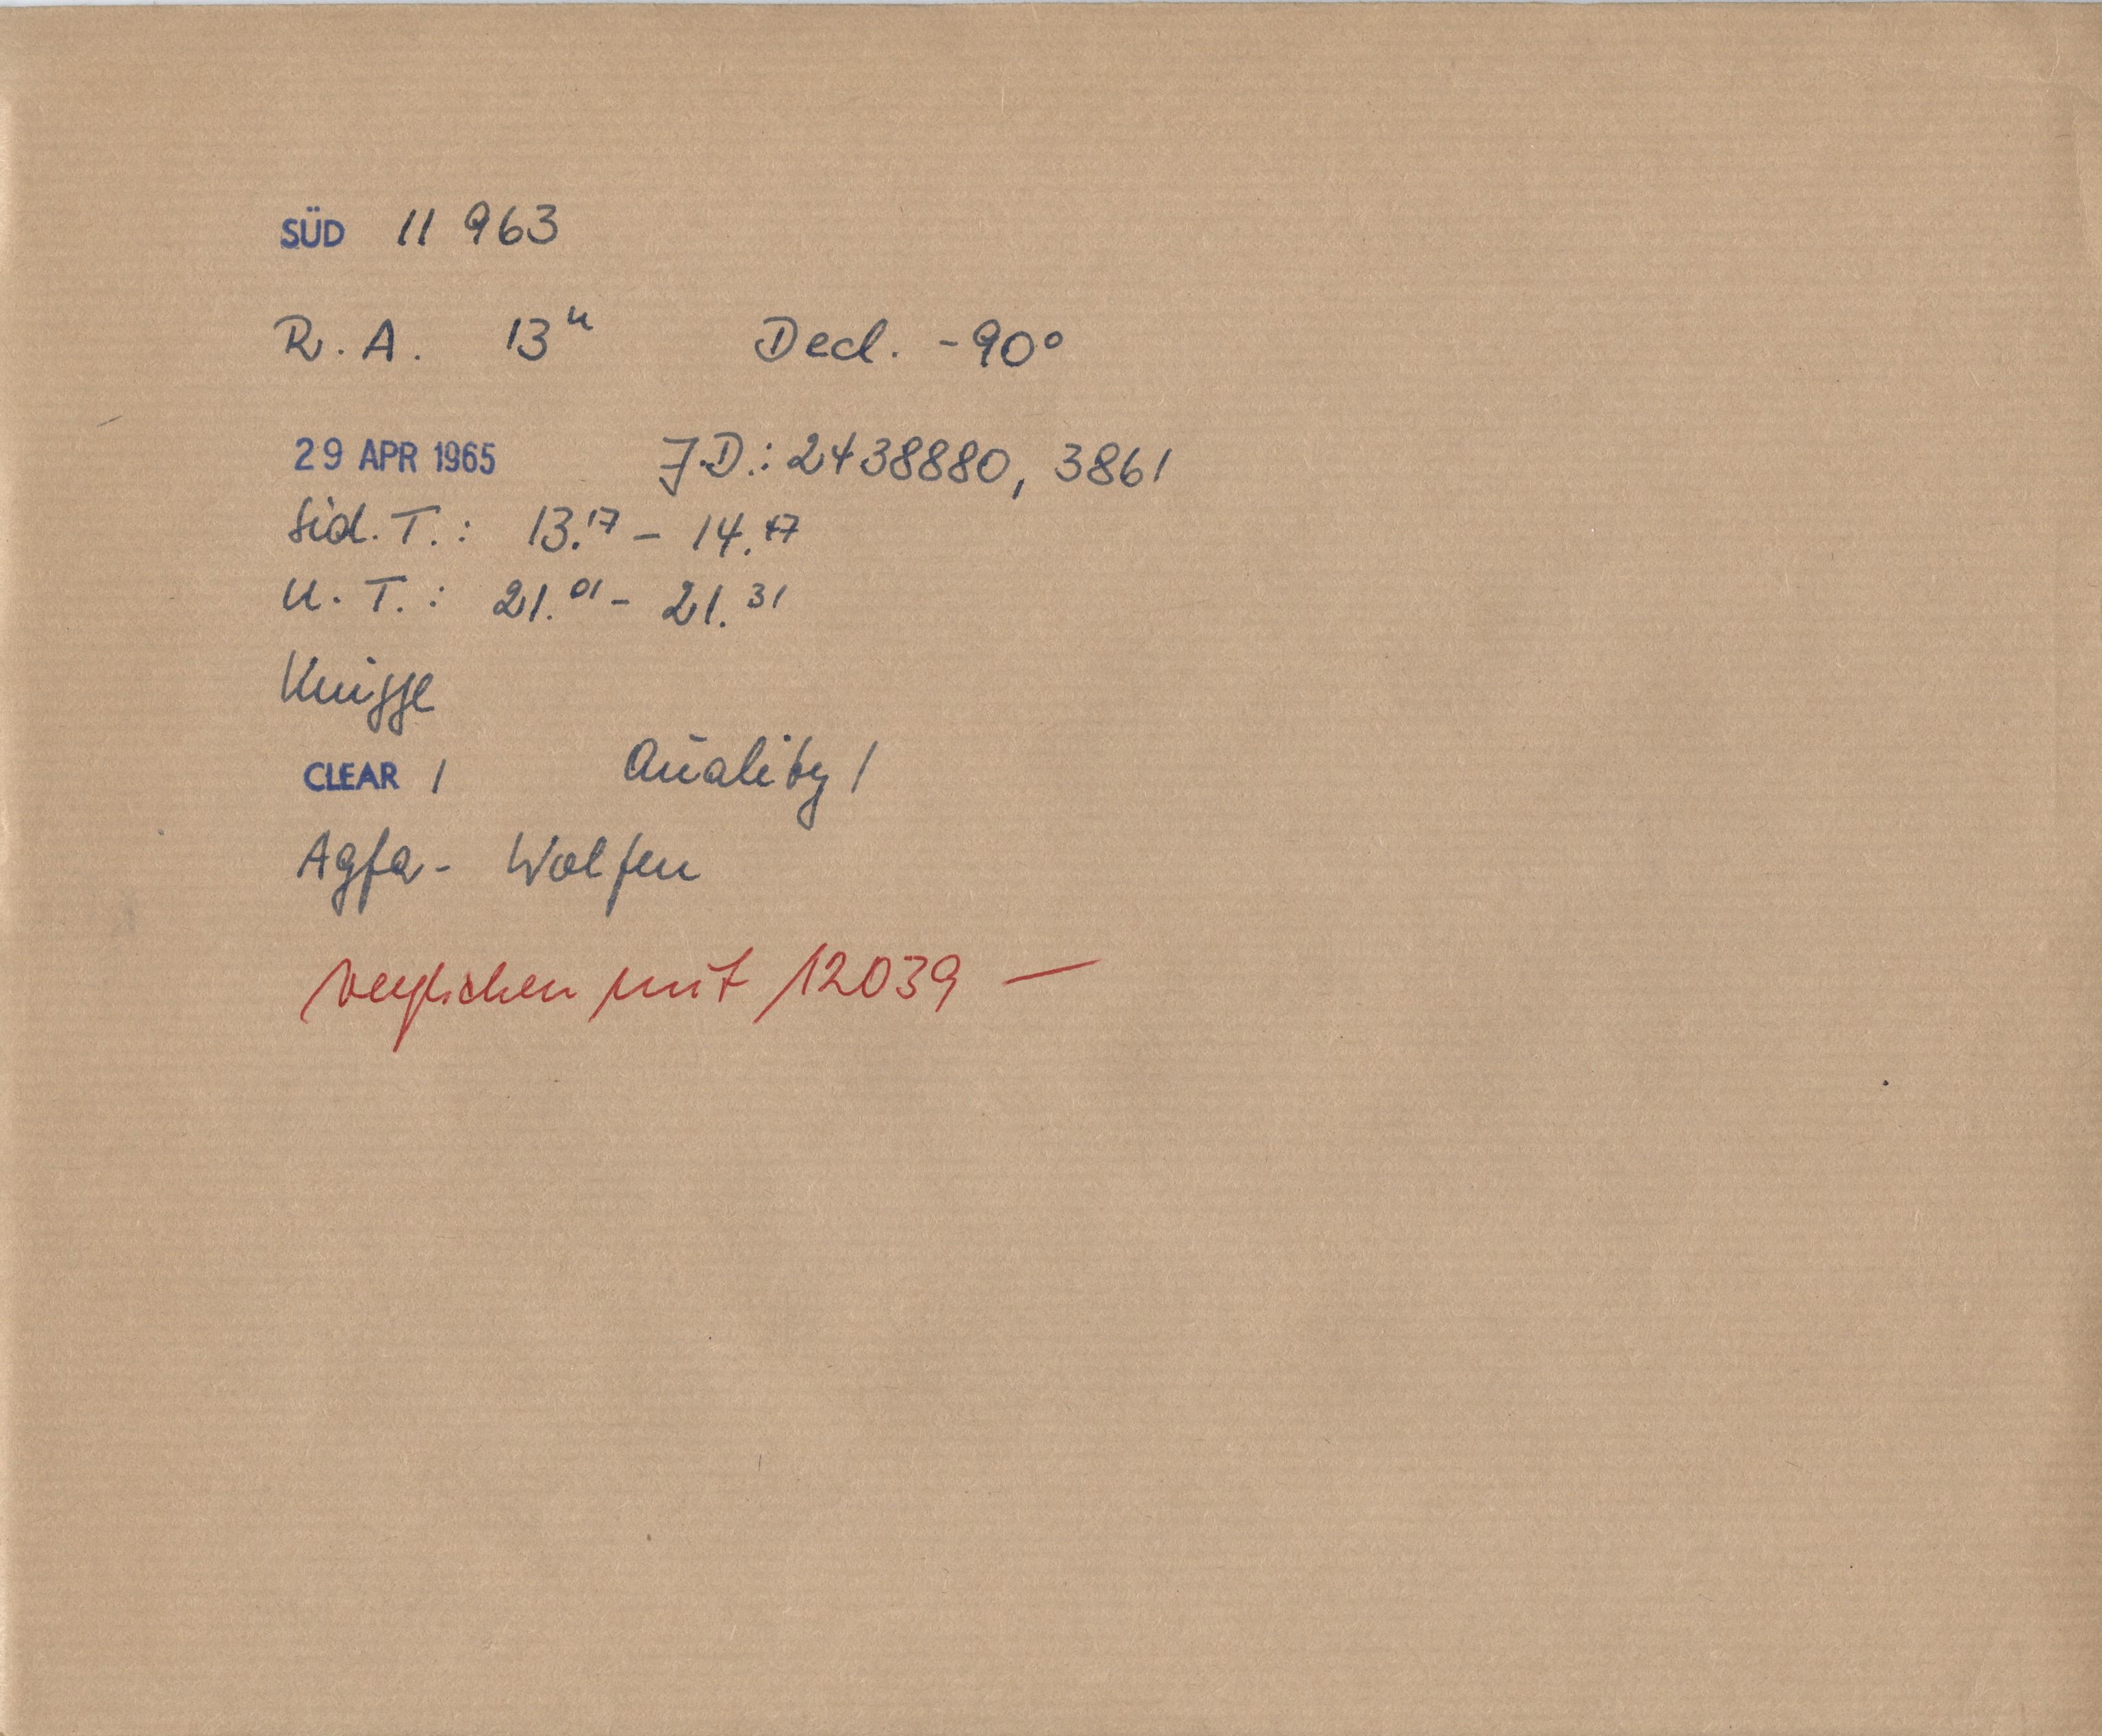 SÜD 11 963
R. A. 13ʰ Decl. -90°
29 APR 1965 J.D.: 2438880, 3861
Sid. T.: 13.17 - 14.47
U. T.: 21.01 - 21.31
Knigge
CLEAR 1 Quality 1
Agfa - Wolfen
verglichen mit 12039 —